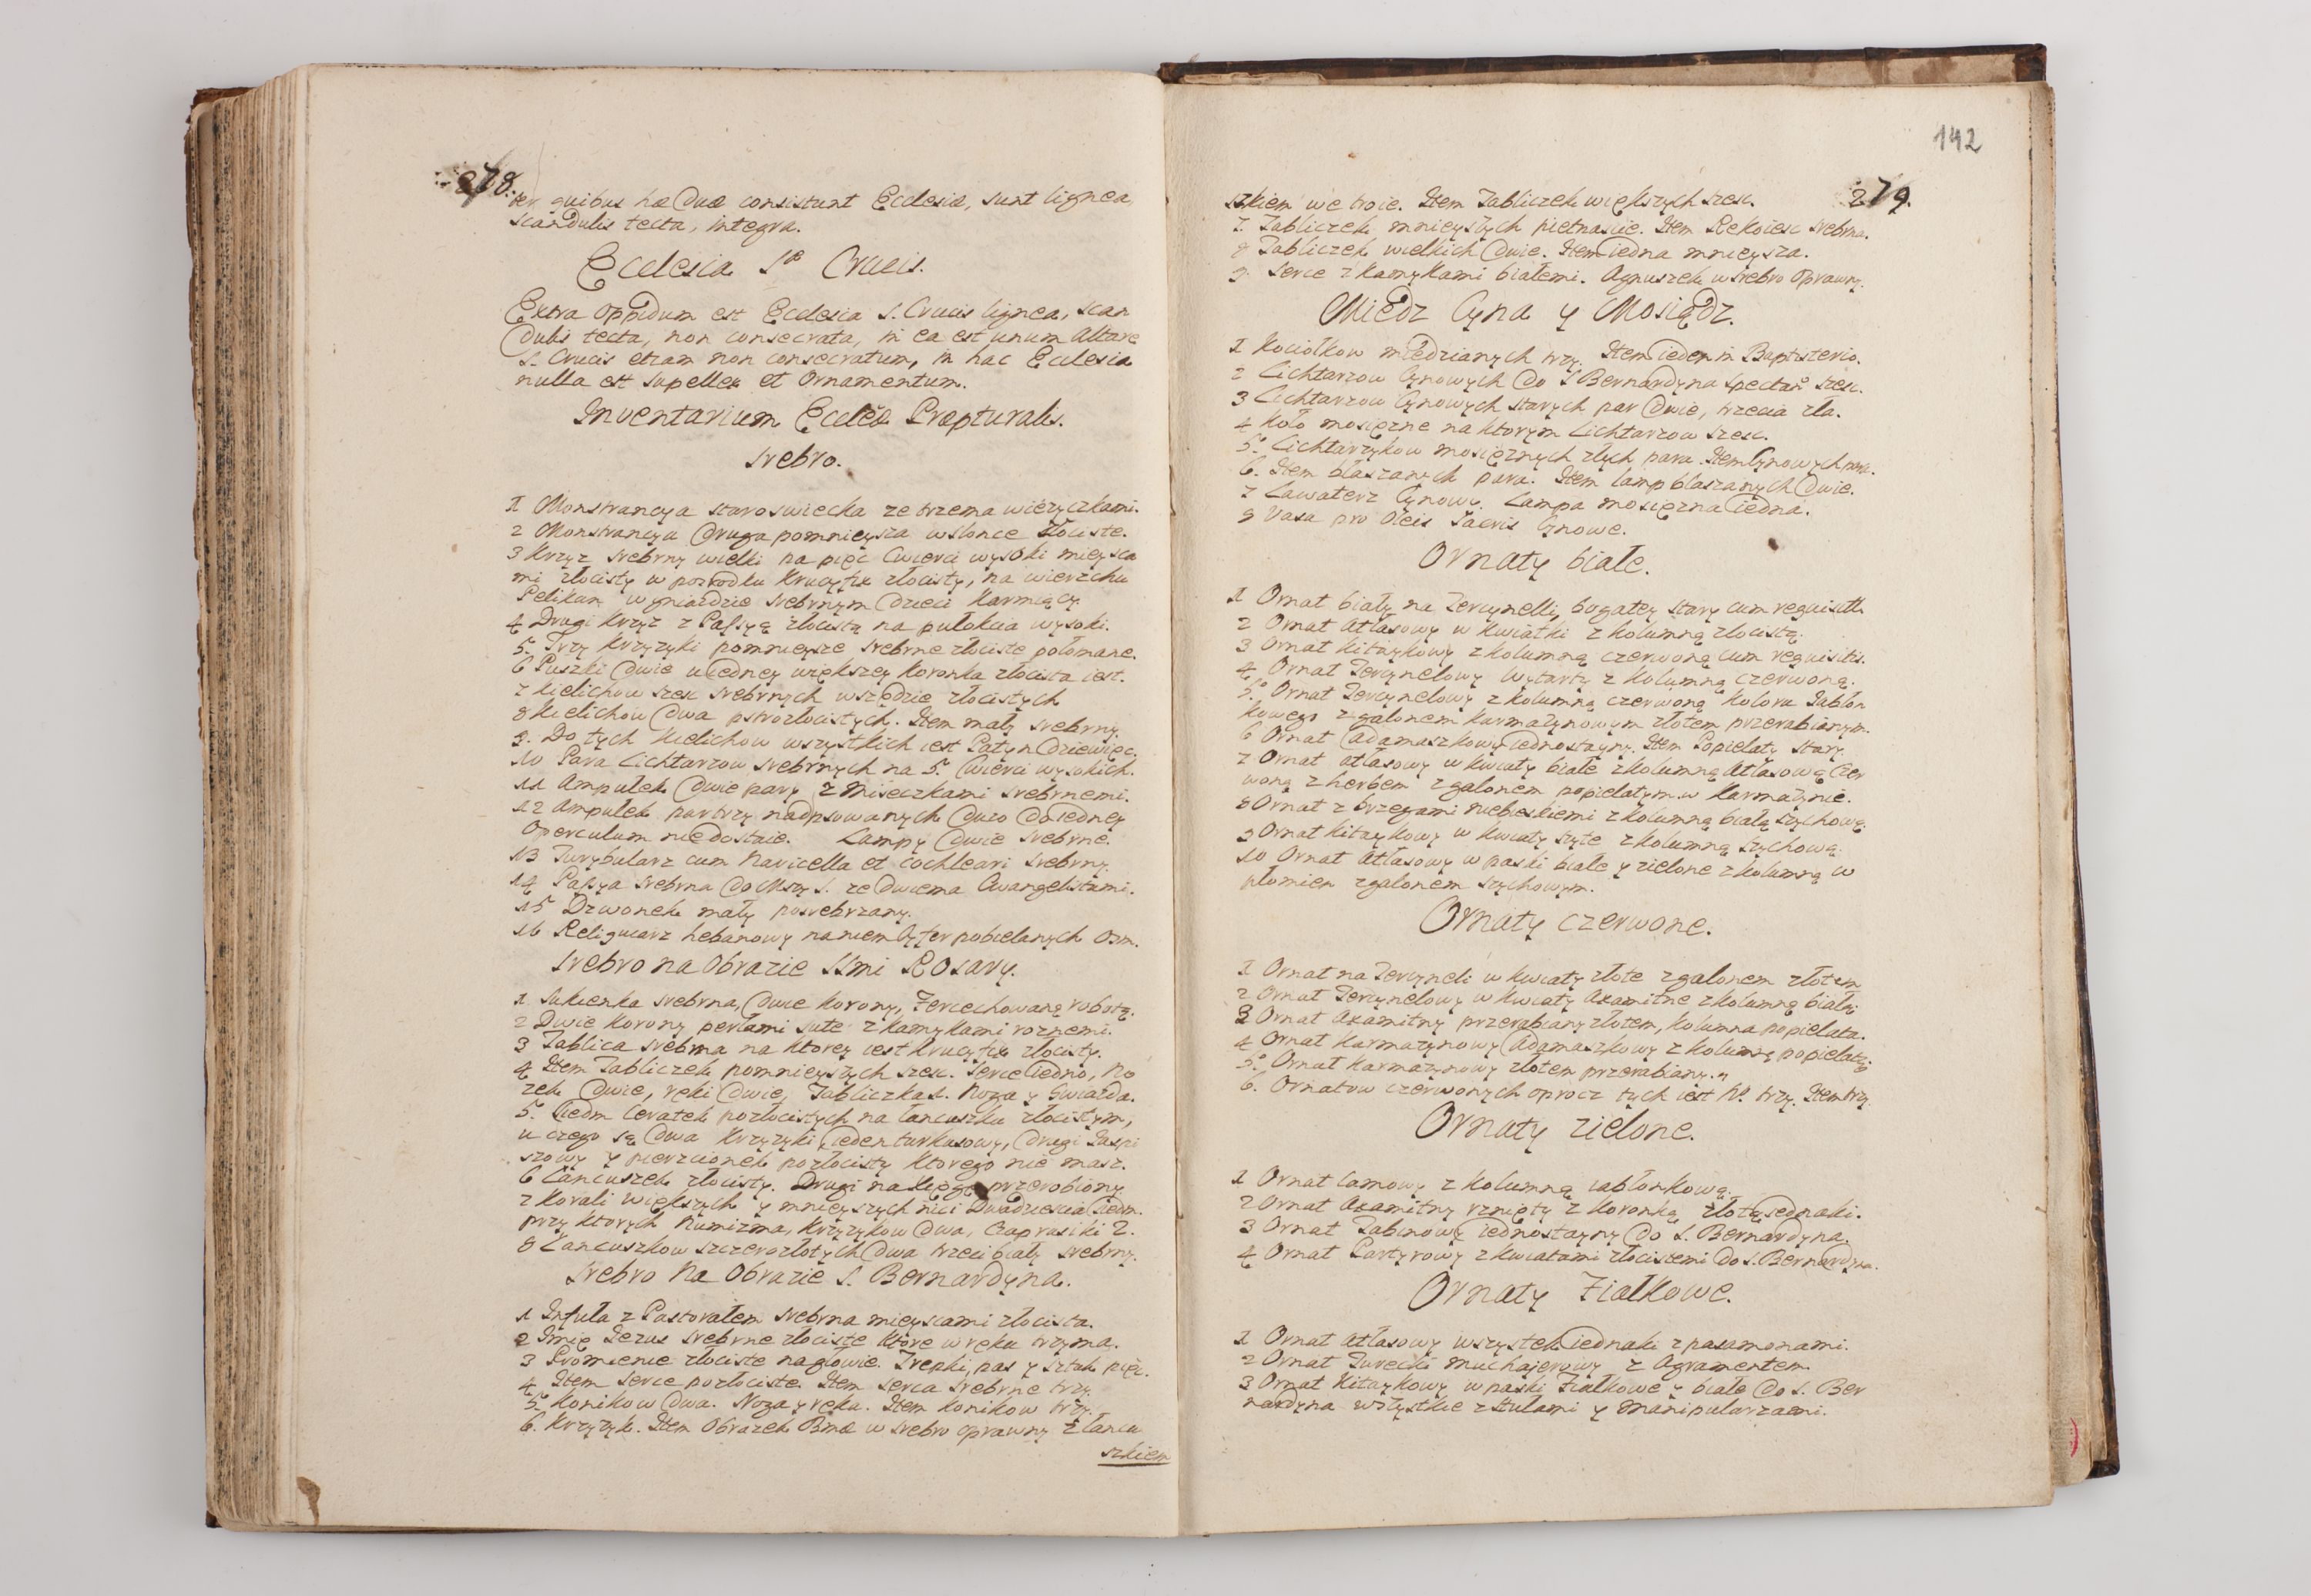 278.
ter quibus hæ duæ consistunt Ecclesiæ, sunt lignea,
scandulis tecta, integra.
Ecclesia S. Crucis.
Extra oppidum est Ecclesia S. Crucis lignea, scan
dulis tecta, non consecrata, in ea est unum Altare
S. Crucis etiam non consecratum, in hac Ecclesia
nulla est supellex et Ornamentum.
Inventarium Eccleæ Præpturalis.
Srebro.
1 Monstrancya staroswiecka ze trzema wiezyczkami.
2 Monstrancya druga pomnieysza w slonce złociste.
3 Krzyz srebrny wielki na pięc cwierci wysoki mieysca
mi złocisty w posrodku Krucyfix złocisty, na wierzchu
Pelikan w gniazdzie srebrnym dzieci karmiący.
4 Drugi Krzyz z Passyą złocistą na pułokcia wysoki.
5. Trzy Krzyzyki pomnieysze srebrne złociste połomane.
6 Puszki dwie u iedney większey Koronka złocista iest.
7 Kielichow szesc srebrnych wszędzie złocistych
8 Kielichow dwa pstrozłocistych. Item mały srebrny.
9. Do tych Kielichow wszystkich iest Patyn dziewięc.
10 Para Lichtarzow srebrnych na 5. cwierci wysokich.
11 Ampułek dwie pary z Miseczkami srebrnemi.
12 Ampułek par trzy nadpsowanych duzo do iedney
Operculum niedostaie. Lampy dwie srebrne.
13 Turybularz cum Navicella et cochleari srebrny.
14 Pasya srebrna do Mszy S. ze dwiema Ewangelistami.
15 Dzwonek mały posrebrzany.
16 Reliquiarz hebanowy na niem Cyfer pobielanych osm.
Srebro na Obrazie SSmi Rosary.
1 Sukienka srebrna, dwie Korony, Fercechowaną robotą.
2 Dwie Korony perłami sute z kamykami roznemi.
3 Tablica srebrna na ktorey iest Krucyfix złocisty.
4 Item Tabliczek pomnieyszych szesc. Serce iedno, No
zek dwie, ręki dwie, Tabliczka S. Noga y Gwiazda.
5. Siedm Ceratek pozłocistych na łancuszku złocistym,
u czego są dwa Krzyzyki, ieden turkusowy, drugi Jaspi
szowy y pierzcionek pozłocisty ktorego nie masz.
6 Łancuszek złocisty. Drugi na przerobiony
7 Korali większych y mnieyszych nici Dwadziescia siedm.
przy ktorych Numizma, Krzyzykow dwa, Caprusiki 2.
8 Łancuszkow szczerozłotych dwa trzeci biały srebrny.
Srebro Na Obrazie S. Bernardyna.
1 Infuła z Pastorałem srebrna mieyscami złocista.
2 Imię Jezus srebrne złociste ktore w ręku trzyma.
3 Promienie złociste na głowie. Trepki, pas y sztuk pięc.
4 Item Serce pozłociste. Item serca srebrne trzy.
5. Konikow dwa. Noga y ręka. Item Konikow trzy.
6. Krzyzyk. Item Obrazek Bmæ w srebro oprawny z łancu
szkiem
142
279.
szkiem we troie. Item Tabliczek większych szesc.
7. Tabliczek mnieyszych pietnascie. Item Rękoiesc srebrna.
8 Tabliczek wielkich dwie. Item iedna mnieysza.
9. Serce z kamykami białemi. Agnuszek w srebro oprawny.
Miedz Cyna y Mosiądz.
1 Kociołkow miedzianych trzy. Item ieden in Baptisterio.
2 Lichtarzow Cynowych do S Bernardyna spectan szesc.
3 Lichtarzow Cynowych starych par dwie, trzecia zła.
4 Koło mosięzne na ktorym Lichtarzow szesc.
5. Lichtarzykow mosięznych złych para. Item Cynowych para.
6. Item blaszanych para. Item lamp blaszanych dwie.
7 Lawaterz Cynowy. Lampa mosięzna iedna.
9 Vasa pro Oleis Sacris Cynowe.
Ornaty białe.
1 Ornat biały na Tercynelli, bogatey stary cum requisitis
2 Ornat Atłasowy w kwiatki z kolumną złocistą.
3 Ornat Kitaykowy z kolumną czerwoną cum requisitis.
4 Ornat Tercynelowy wytarty z kolumną czerwoną.
5. Ornat Tercynelowy z kolumną czerwoną koloru Jabłon
kowego z galonem karmazynowym złotem przerabianym.
6 Ornat Adamaszkowy iednostayny. Item Popielaty stary.
7 Ornat atłasowy w kwiaty białe z kolumną Atłasową Czer
woną z herbem z galonem popielatym w karmazynie.
8 Ornat z brzegami niebieskiemi z kolumną białą szychową.
9 Ornat Kitaykowy w kwiaty szyte z kolumną szychową.
10 Ornat Atłasowy w paski białe y zielone z kolumną w
płomien z galonem szychowym.
Ornaty czerwone.
1 Ornat na Tercyneli w kwiaty złote z galonem złotem
2 Ornat Tercynelowy w kwiaty Axamitne z kolumną białą
3 Ornat Axamitny przerabiany złotem, kolumna popielata.
4 Ornat Karmazynowy Adamaszkowy z kolumną popielatą.
5. Ornat Karmazynowy złotem przerabiany.
6. Ornatow czerwonych oprocz tych iest No trzy. Item trzy.
Ornaty zielone.
1 Ornat lamowy z kolumną iabłonkową.
2 Ornat Axamitny rznięty z koronką złotą iednaki.
3 Ornat Tabinowy iednostayny do S. Bernardyna.
4 Ornat Partyrowy z kwiatami złocistemi do S. Bernardyna.
Ornaty Fiałkowe.
1 Ornat Atłasowy wszystek iednaki z pasamonami.
2 Ornat Turecki Muchajerowy z Agramentem
3 Ornat Kitaykowy w paski Fiałkowe y białe do S. Ber
nardyna wszystkie z Stułami y Manipularzami.